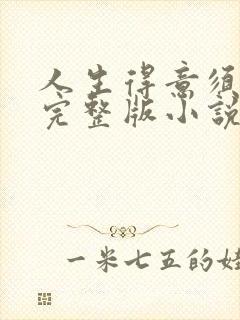 人生得意须
完整版小說
一米七五的娃